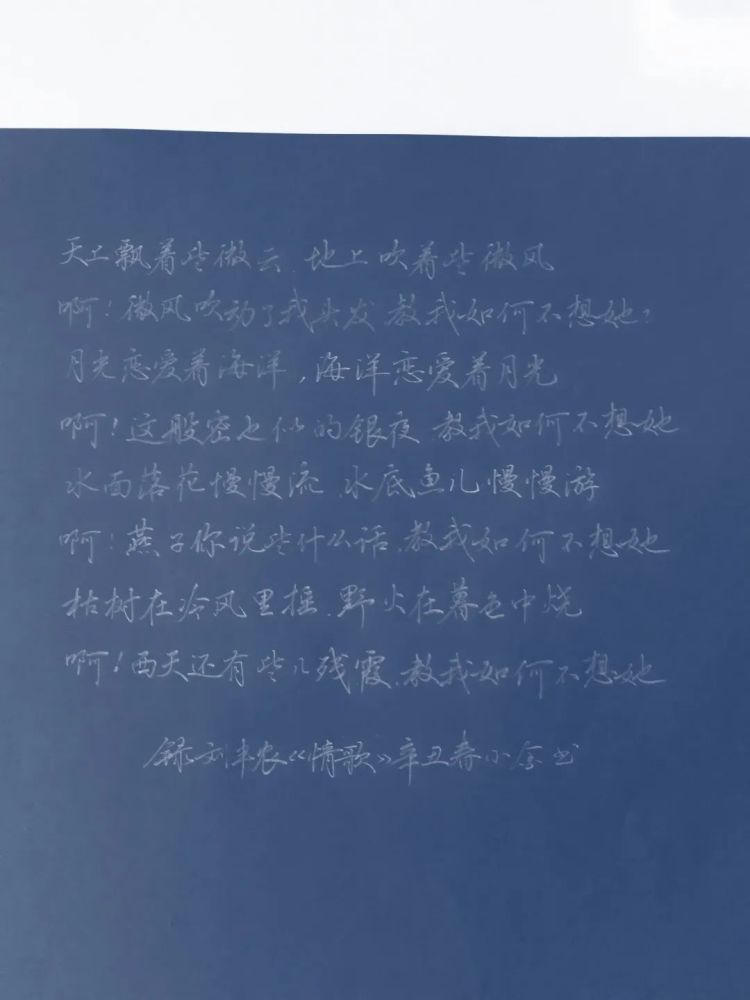 天上飘着些微云 地上吹着些微风
啊!微风吹动了我头发 教我如何不想她?
月光恋爱着海洋,海洋恋爱着月光
啊!这般密也似的银夜 教我如何不想她
水面落花慢慢流 水底鱼儿慢慢游
啊!燕子你说些什么话,教我如何不想她
枯树在冷风里摇,野火在暮色中烧
啊!西天还有些儿残霞,教我如何不想她
录刘半农《情歌》辛丑春小念书